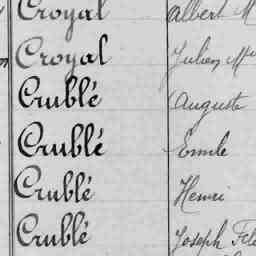 Croyal Albert M
Croyal Julien M
Crublé Auguste
Crublé Emile
Crublé Henri
Crublé Joseph